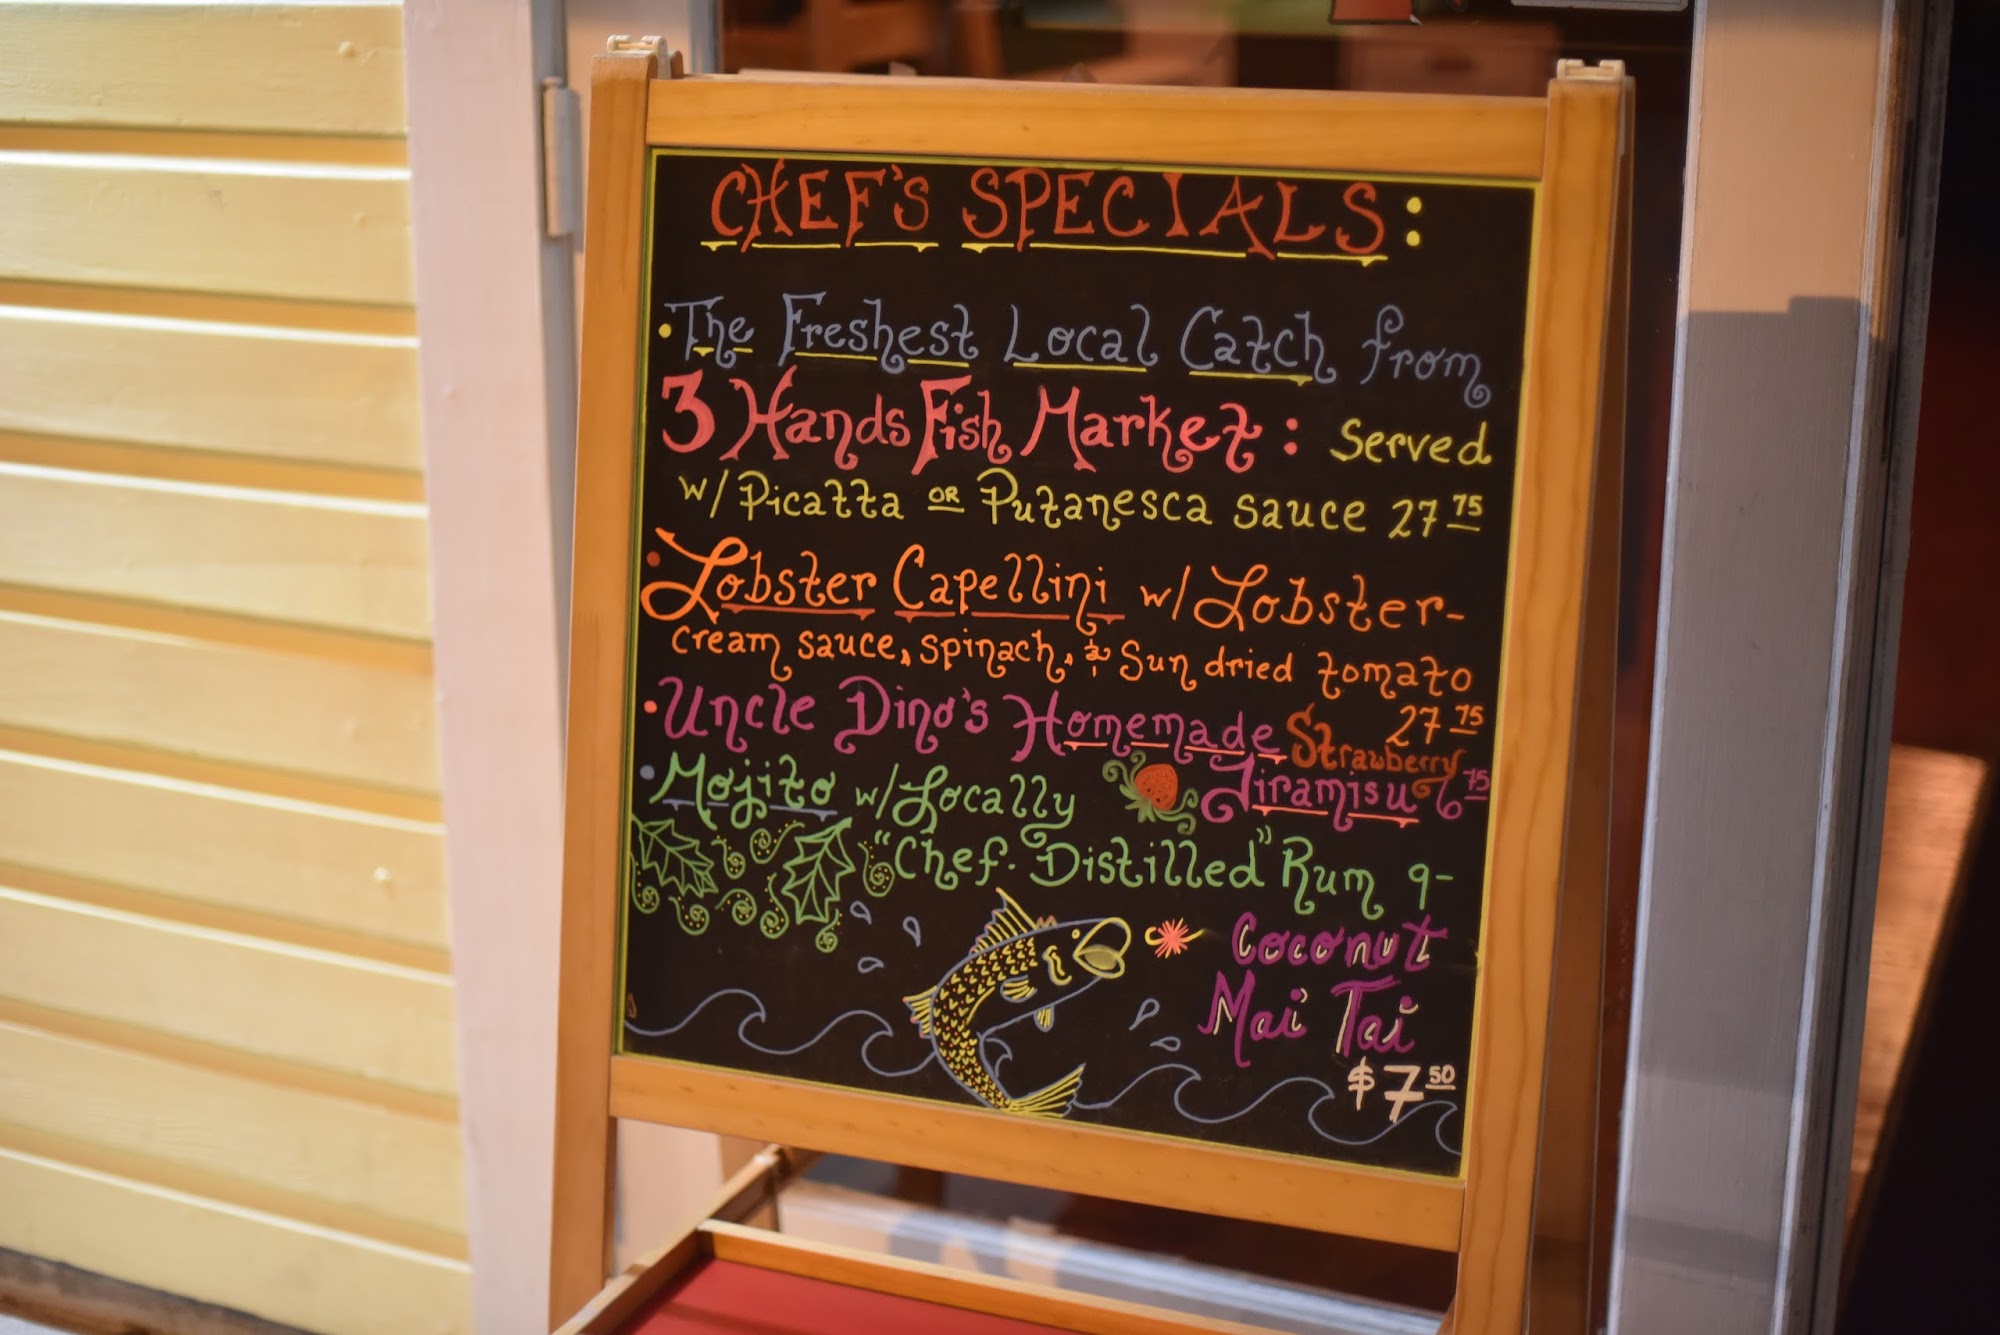 CHEF'S SPECIALS:
• The Freshest Local Catch from
3 Hands Fish Market: Served
w/ Picatta OR Putanesca sauce 27 75
• Lobster Capellini w/ Lobster-
cream sauce, spinach, & Sun dried tomato
27 75
• Uncle Dino's Homemade Strawberry
Tiramisu 6 75
• Mojito w/ Locally
"Chef. Distilled" Rum 9-
Coconut
Mai Tai
$7 50